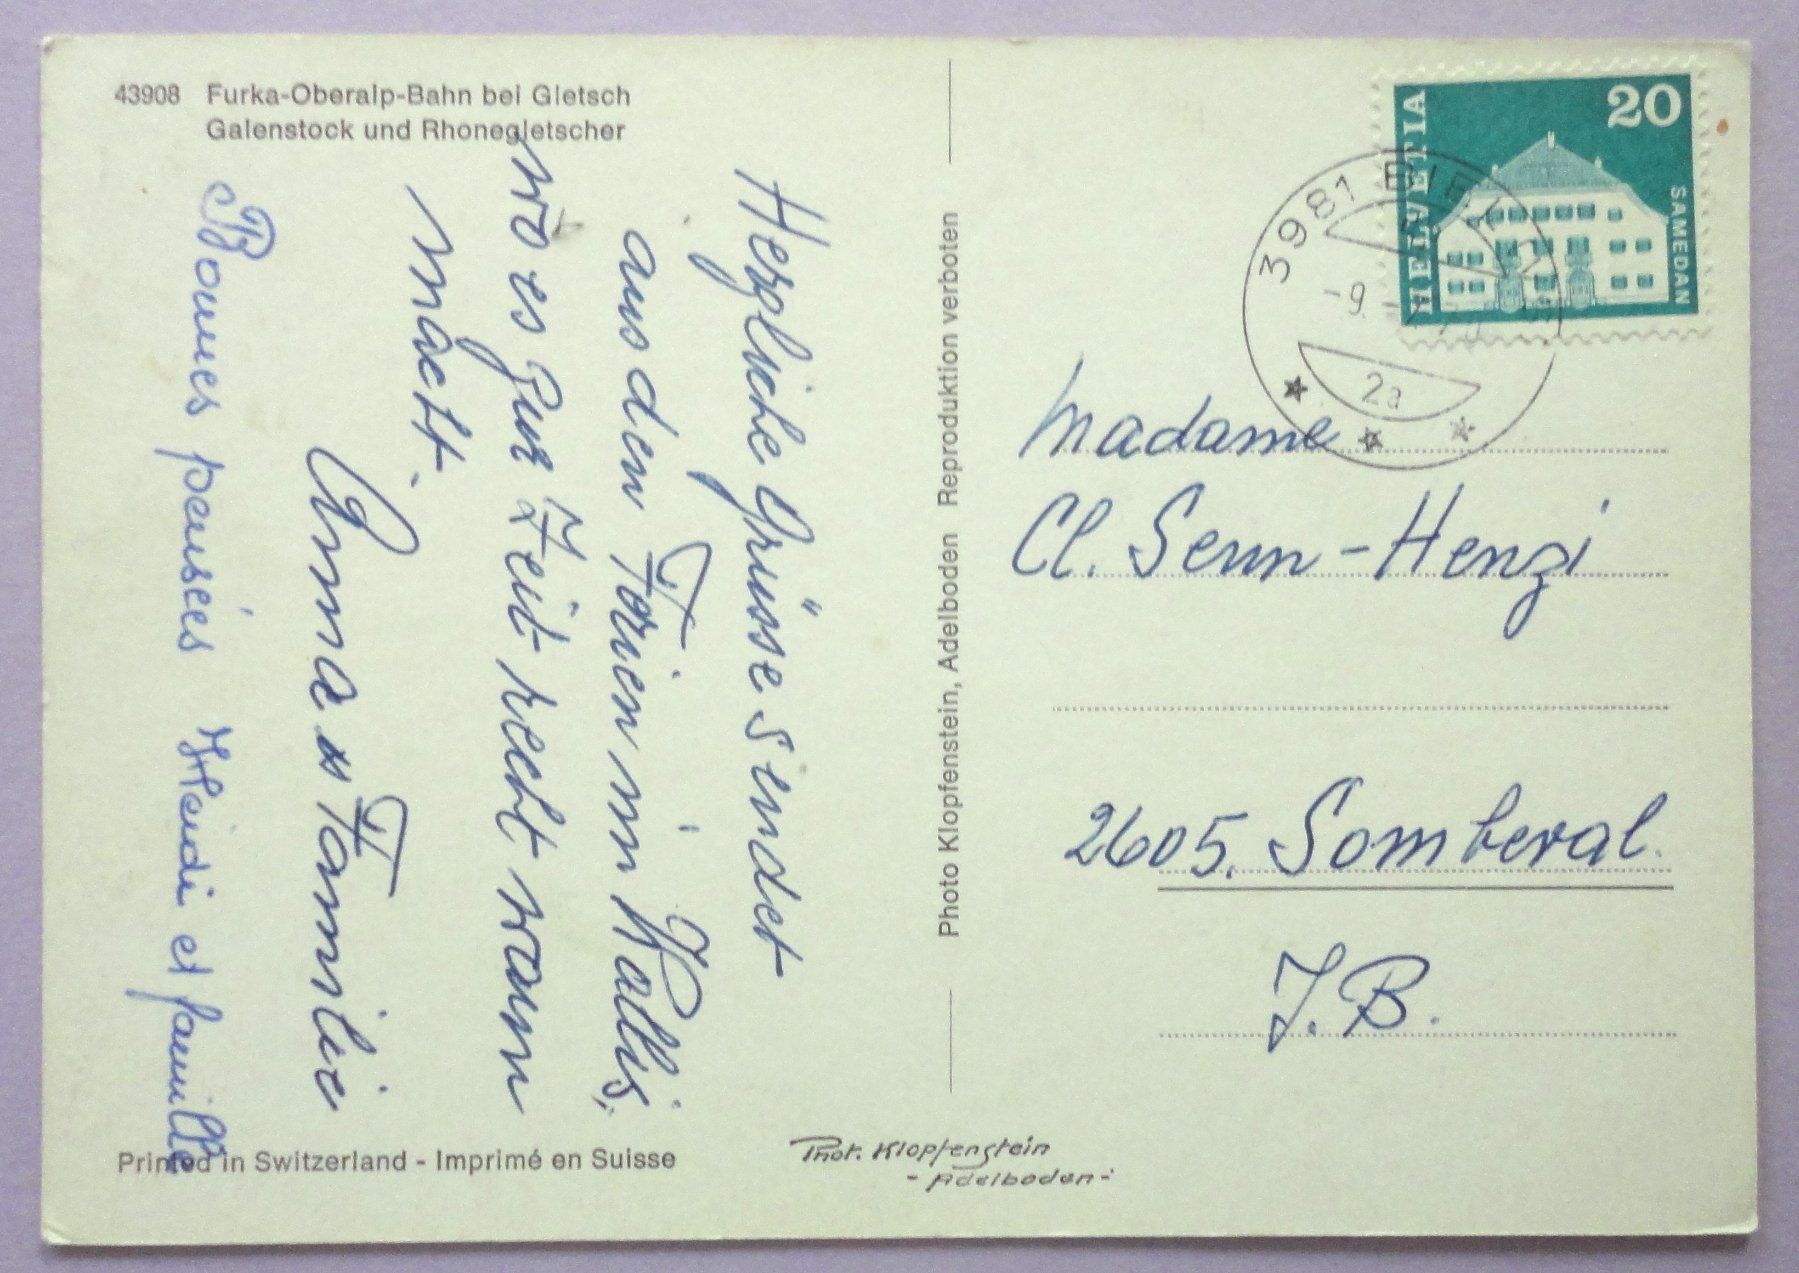 43908 Furka-Oberalp-Bahn bei Gletsch
Galenstock und Rhonegletscher
Herzliche Grüsse sendet
aus den Ferien im Wallis,
wo es zur Zeit recht warm
macht.
Anna u Familie
Bonnes pensées Heidi et famille
Printed in Switzerland - Imprimé en Suisse
Photo Klopfenstein, Adelboden Reproduktion verboten
Phot. Klopfenstein
- Adelboden -
HELVETIA
20
SAMEDAN
3981
-9.
2a
Madame
Cl. Senn-Henzi
2605. Sombeval.
J.B.